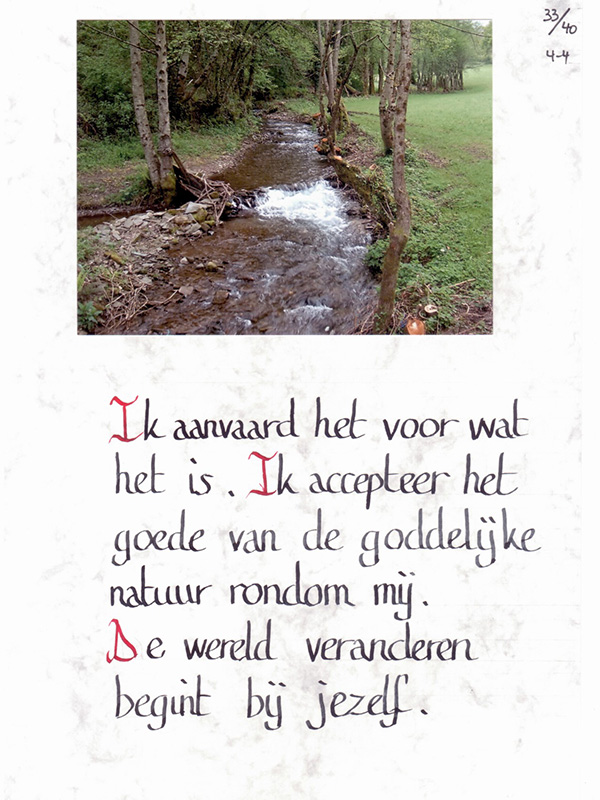 33/40
4-4
Ik aanvaard het voor wat
het is. Ik accepteer het
goede van de goddelijke
natuur rondom mij.
De wereld veranderen
begint bij jezelf.